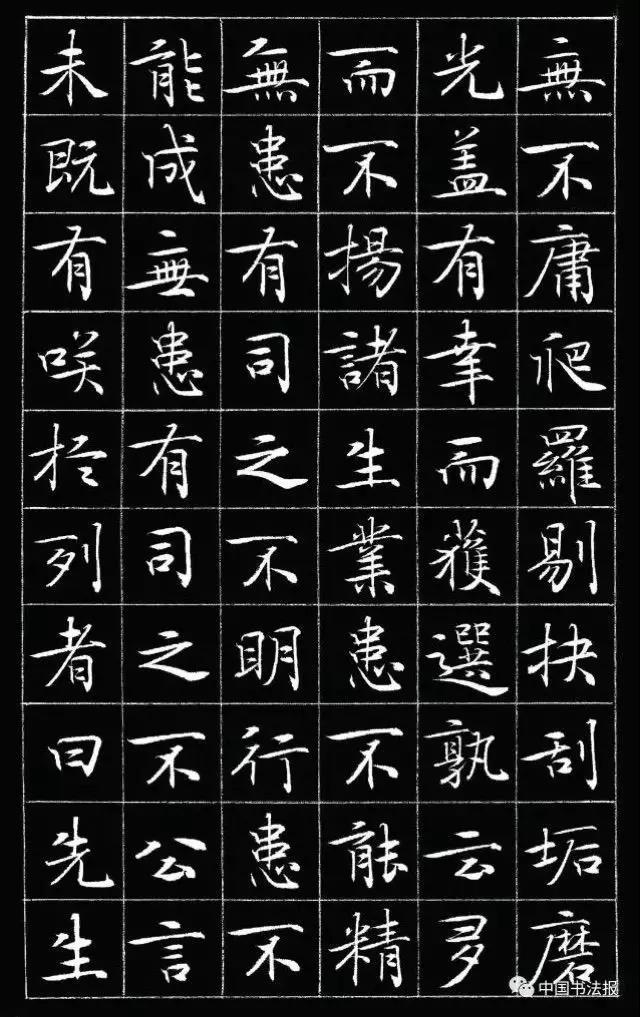 無不庸爬羅剔抉刮垢磨
光盖有幸而獲選孰云多
而不揚諸生業患不能精
無患有司之不明行患不
能成無患有司之不公言
未既有咲扵列者曰先生
中国书法报